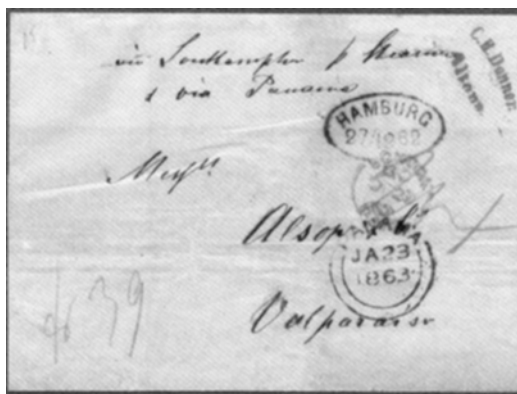 via Southampton p Steamer
& via Panama
C. H. Donner.
Altona.
HAMBURG
27 1862
Messrs
Alsop & Co
PANAMA
JA 23
1863
Valparaiso
39